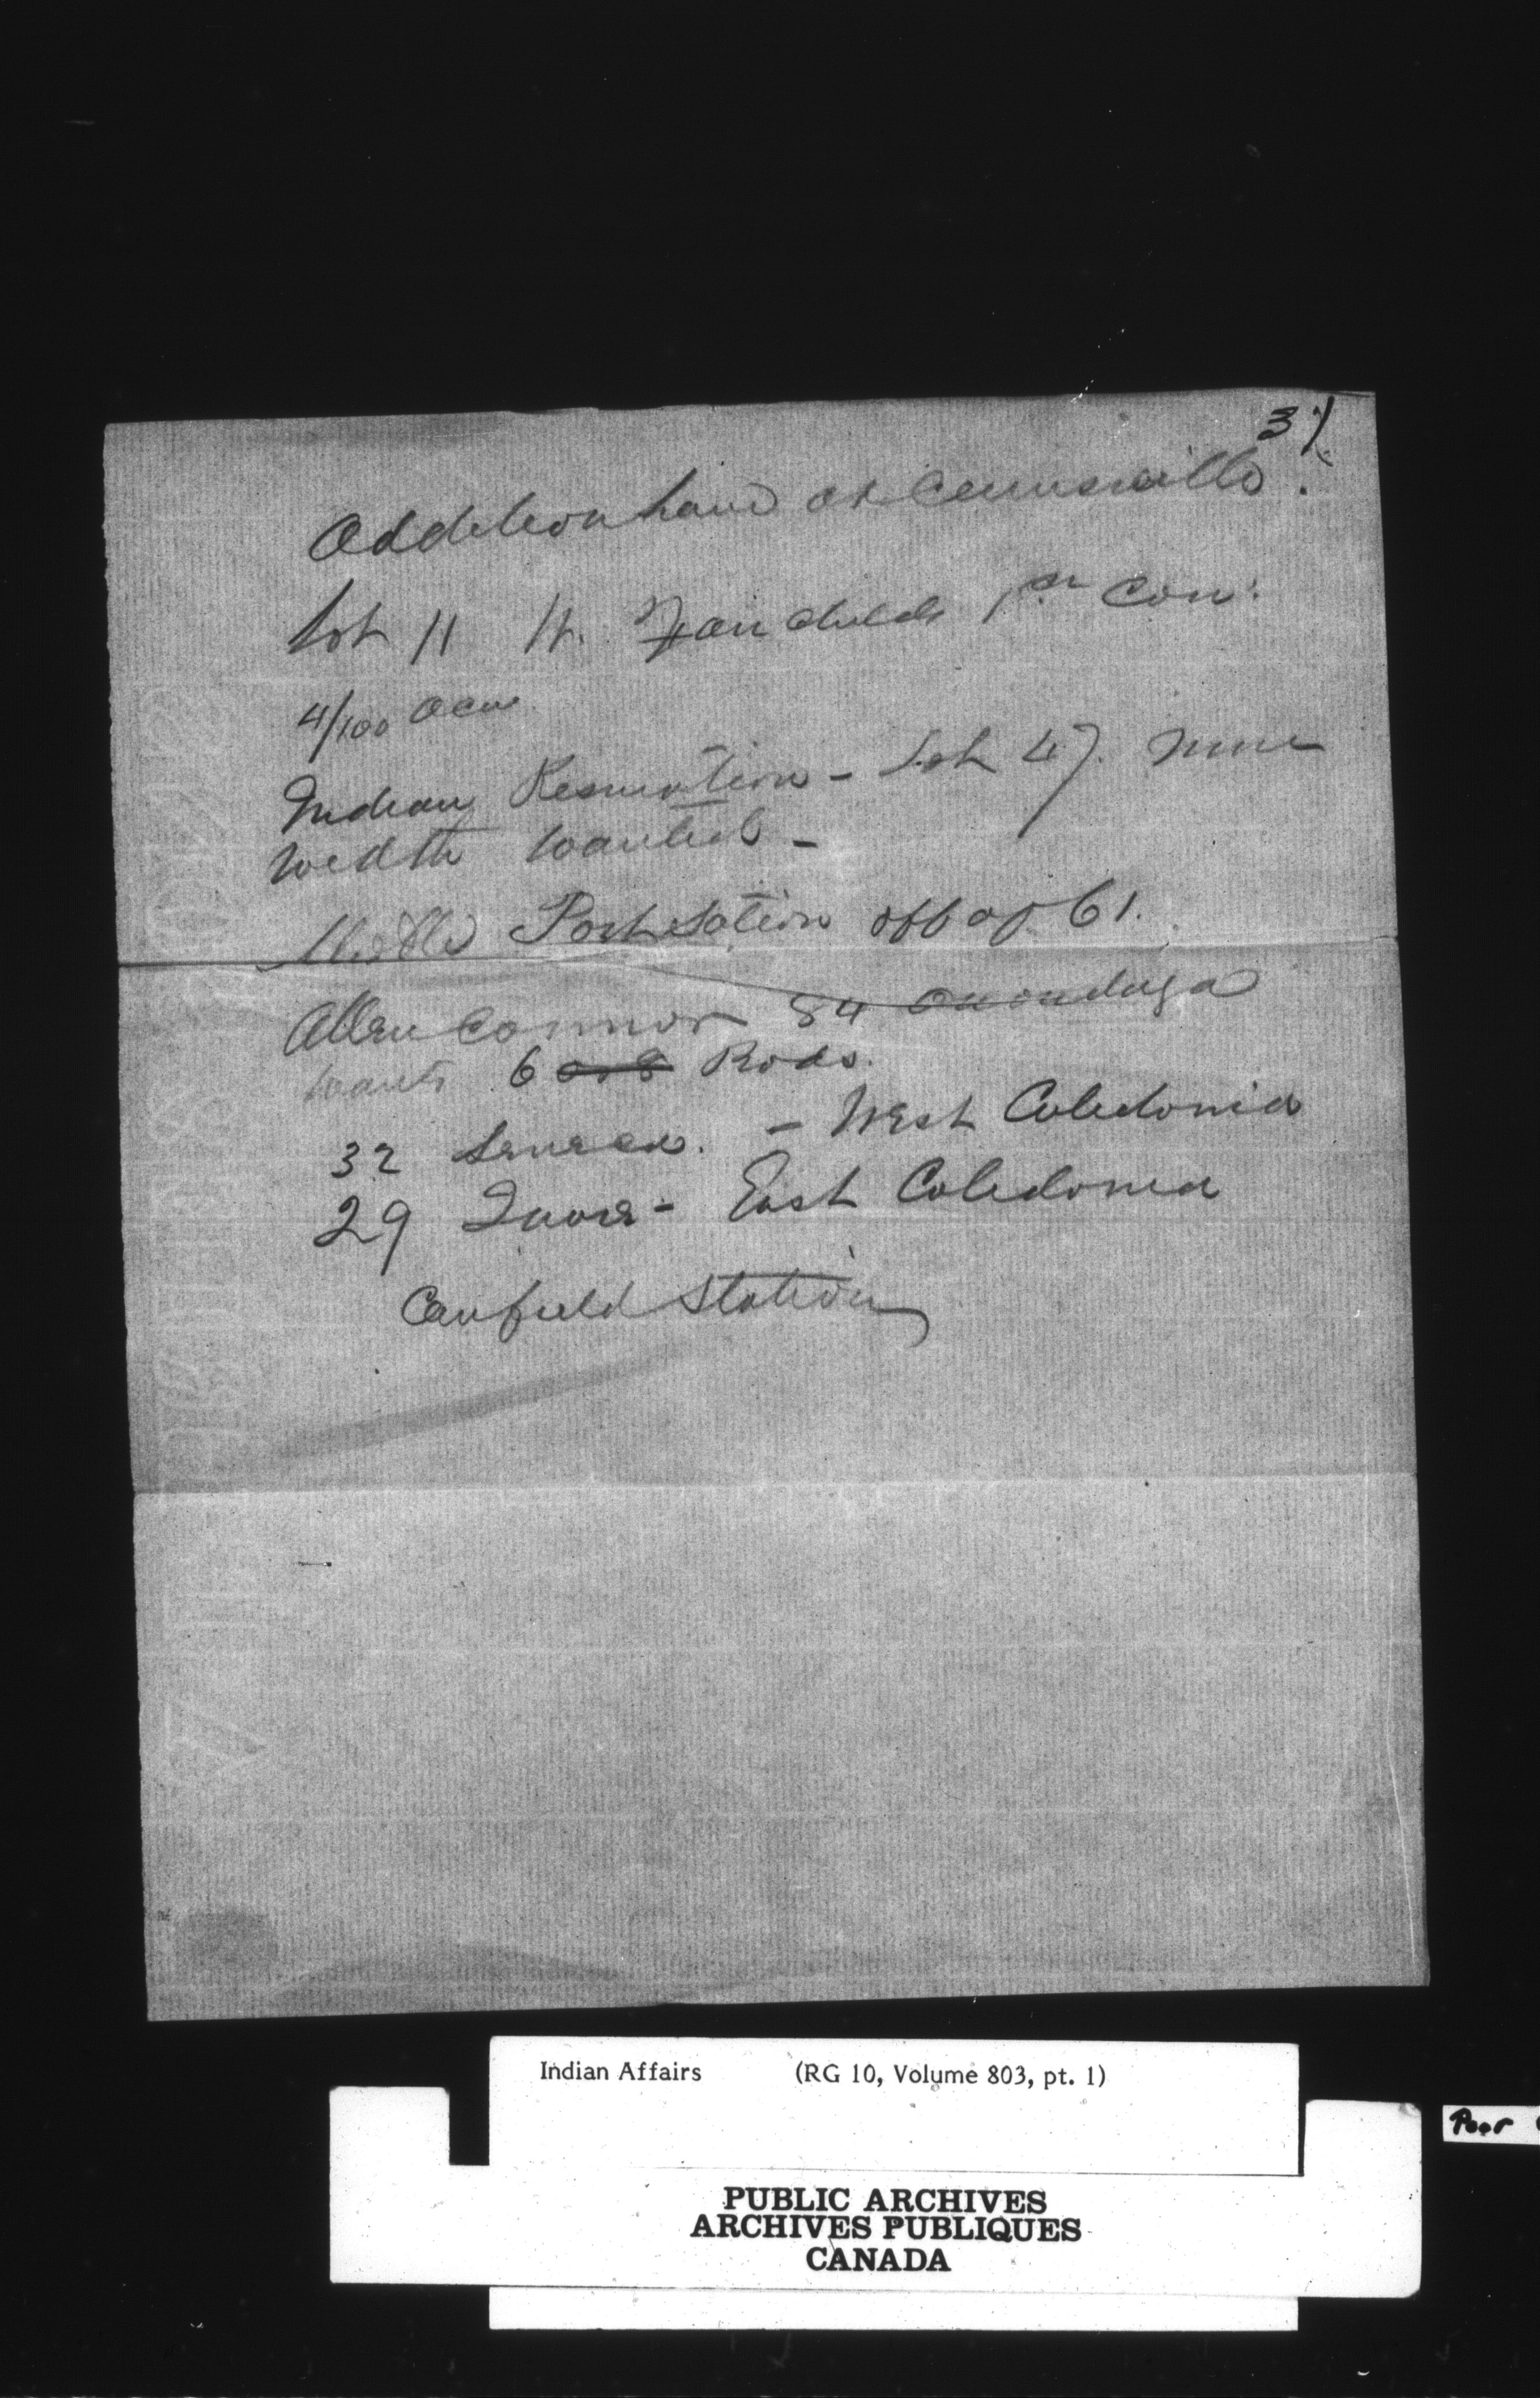 37
Addition land at Cainsville.
Lot 11 H. Fairchilds 1st Con:
4/100 acre
Indian Reservation - Lot 47. more
width wanted -
Middle Port Station off of 61.
Allen Connor 84 Onondaga
wants 6 or 8 Rods.
32 Seneca. - West Caledonia
29 - East Caledonia
Canfield Station
Indian Affairs (RG 10, Volume 803, pt. 1)
PUBLIC ARCHIVES
ARCHIVES PUBLIQUES
CANADA
Poor